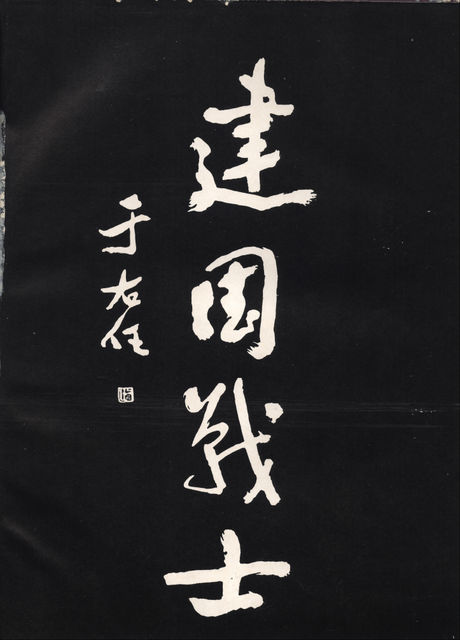 建國戰士
于右任